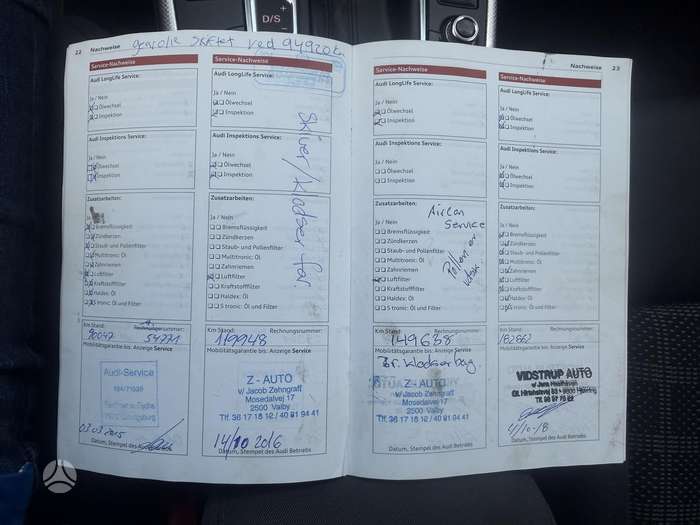 D/S
22 Nachweise
skiftet ved 94920 km
Service-Nachweise
Audi LongLife Service:
Ja / Nein
Ölwechsel
Inspektion
Audi Inspektions Service:
Ja / Nein
Ölwechsel
Inspektion
Zusatzarbeiten:
Ja / Nein
Bremsflüssigkeit
Zündkerzen
Staub- und Pollenfilter
Multitronic: Öl
Zahnriemen
Luftfilter
Kraftstofffilter
Haldex: Öl
S tronic: Öl und Filter
Km Stand: Rechnungsnummer:
90047 54771
Mobilitätsgarantie bis: Anzeige Service
Audi-Service
03.03.2015
Datum, Stempel des Audi Betriebs
Service-Nachweise
Audi LongLife Service:
Ja / Nein
Ölwechsel
Inspektion
Audi Inspektions Service:
Ja / Nein
Ölwechsel
Inspektion
Skiver/Klodser for
Zusatzarbeiten:
Ja / Nein
Bremsflüssigkeit
Zündkerzen
Staub- und Pollenfilter
Multitronic: Öl
Zahnriemen
Luftfilter
Kraftstofffilter
Haldex: Öl
S tronic: Öl und Filter
Km Stand: Rechnungsnummer:
119948
Mobilitätsgarantie bis: Anzeige Service
Z - AUTO
v/ Jacob Zehngraff
Mosedalvej 17
2500 Valby
Tlf. 36 17 18 12 / 40 81 94 41
14/10 2016
Datum, Stempel des Audi Betriebs
Nachweise 23
Service-Nachweise
Audi LongLife Service:
Ja / Nein
Ölwechsel
Inspektion
Audi Inspektions Service:
Ja / Nein
Ölwechsel
Inspektion
Zusatzarbeiten:
Ja / Nein
Bremsflüssigkeit
Zündkerzen
Staub- und Pollenfilter
Multitronic: Öl
Zahnriemen
Luftfilter
Kraftstofffilter
Haldex: Öl
S tronic: Öl und Filter
Aircon
Service
Pollen er
Km Stand: Rechnungsnummer:
149638
Mobilitätsgarantie bis: Anzeige Service
Br. klodser bag
Z - AUTO
v/ Jacob Zehngraff
Mosedalvej 17
2500 Valby
Tlf. 36 17 18 12 / 40 81 94 41
Datum, Stempel des Audi Betriebs
Service-Nachweise
Audi LongLife Service:
Ja / Nein
Ölwechsel
Inspektion
Audi Inspektions Service:
Ja / Nein
Ölwechsel
Inspektion
Zusatzarbeiten:
Ja / Nein
Bremsflüssigkeit
Zündkerzen
Staub- und Pollenfilter
Multitronic: Öl
Zahnriemen
Luftfilter
Kraftstofffilter
Haldex: Öl
S tronic: Öl und Filter
Km Stand: Rechnungsnummer:
182862
Mobilitätsgarantie bis: Anzeige Service
VIDSTRUP AUTO
4/10-18
Datum, Stempel des Audi Betriebs